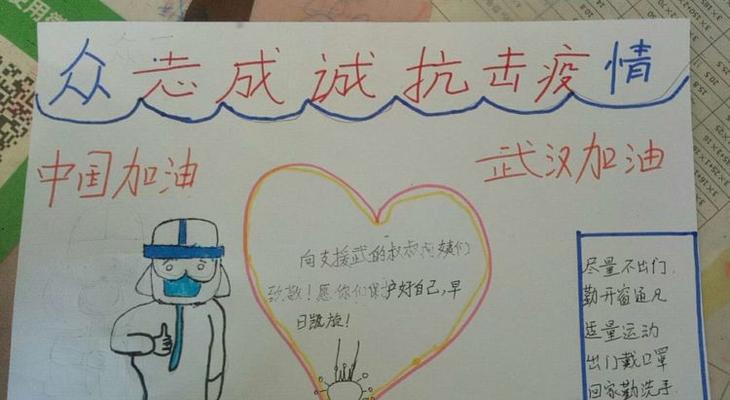 众志成诚抗击疫情
中国加油
武汉加油
向支援武的叔叔阿姨们
致敬！愿你们保护好自己，早
日凯旋！
尽量不出门
勤开窗通风
适量运动
出门戴口罩
回家勤洗手